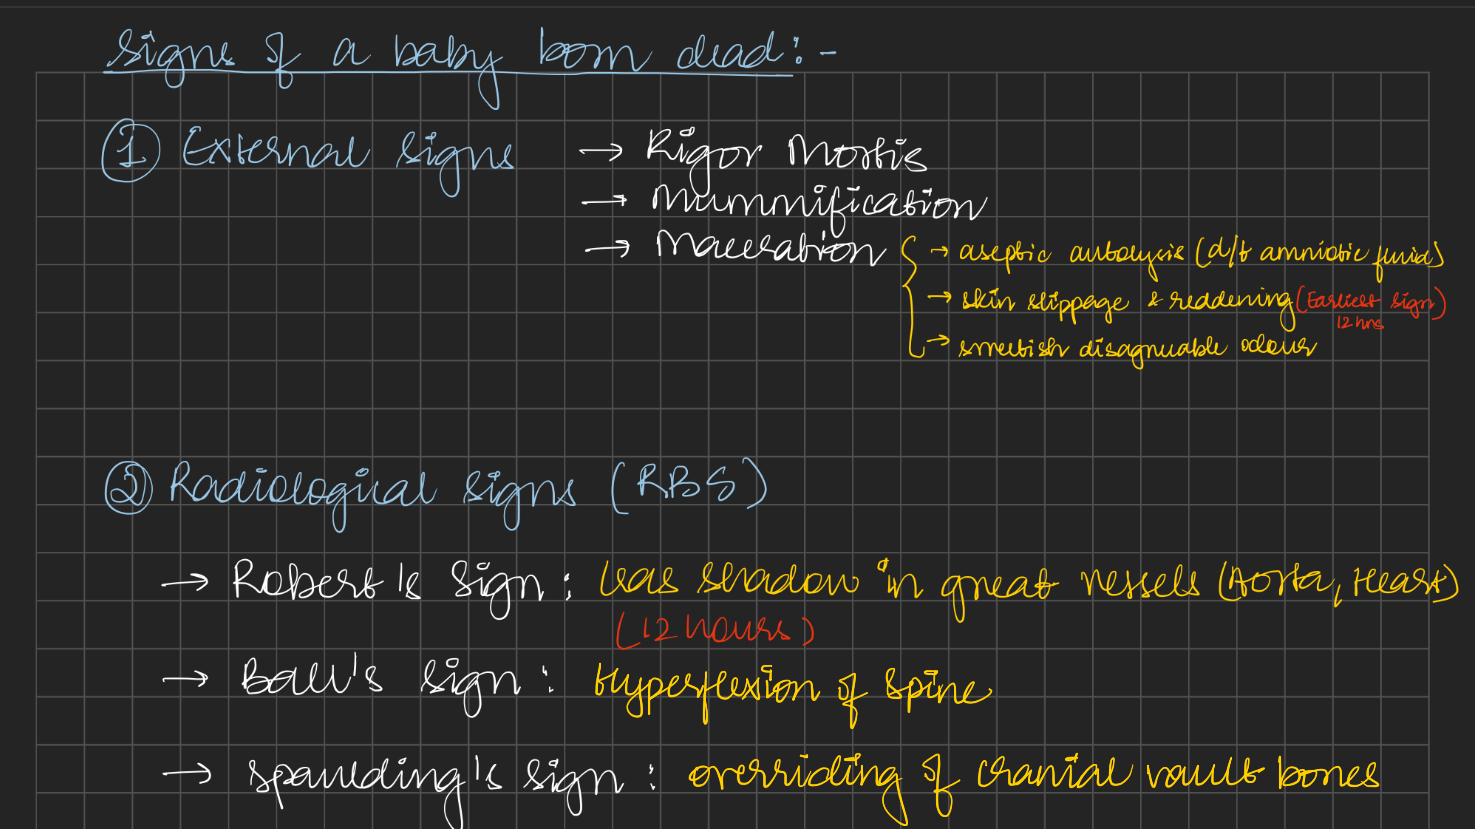 Signs of a baby born dead:-
① External signs → Rigor Mortis
→ Mummification
→ Maceration { → aseptic autolysis (d/t amniotic fluid)
→ skin slippage & reddening (Earliest sign)
12 hrs
→ sweetish disagreeable odour
② Radiological signs (RBS)
→ Robert's sign : Gas shadow in great vessels (Aorta, Heart)
(12 hours)
→ Ball's sign : Hyperflexion of spine
→ Spaulding's sign : overriding of cranial vault bones